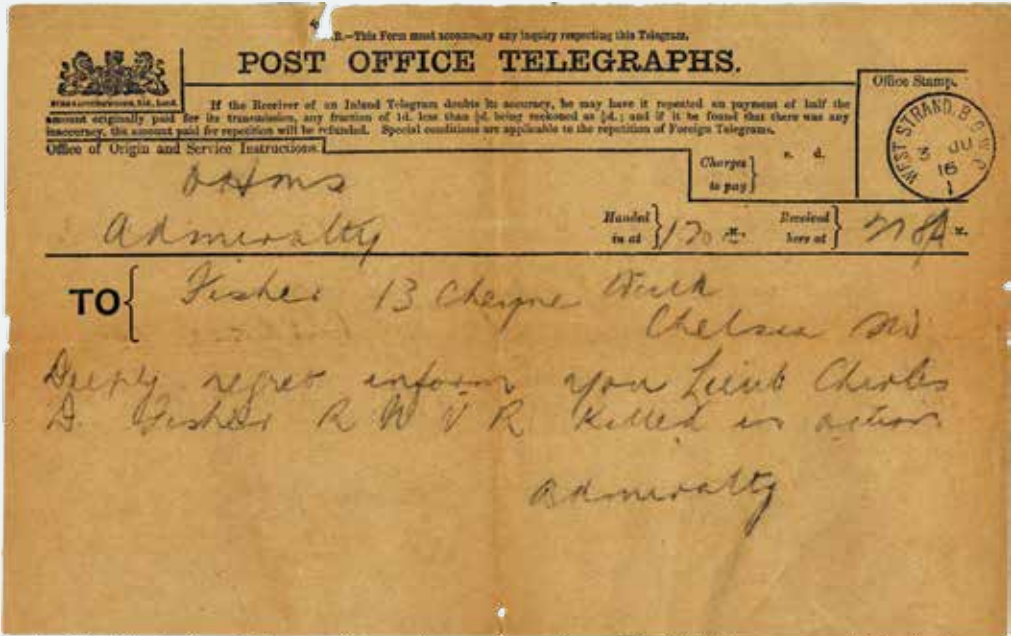 B.—This Form must accompany any inquiry respecting this Telegram.
POST OFFICE TELEGRAPHS.
If the Receiver of an Inland Telegram doubts its accuracy, he may have it repeated on payment of half the
amount originally paid for its transmission, any fraction of 1d. less than ½d. being reckoned as ½d.; and if it be found that there was any
inaccuracy, the amount paid for repetition will be refunded. Special conditions are applicable to the repetition of Foreign Telegrams.
Office of Origin and Service Instructions.
Office Stamp.
WEST STRAND, B.O. W.C.
3 JU
16
1
Charges to pay
s. d.
OHMS
Admiralty
Handed in at
Received here at
TO Fisher 13 Cheyne
Chelsea
Deeply regret inform you Lieut Charles
D. Fisher R N V R killed in action
Admiralty